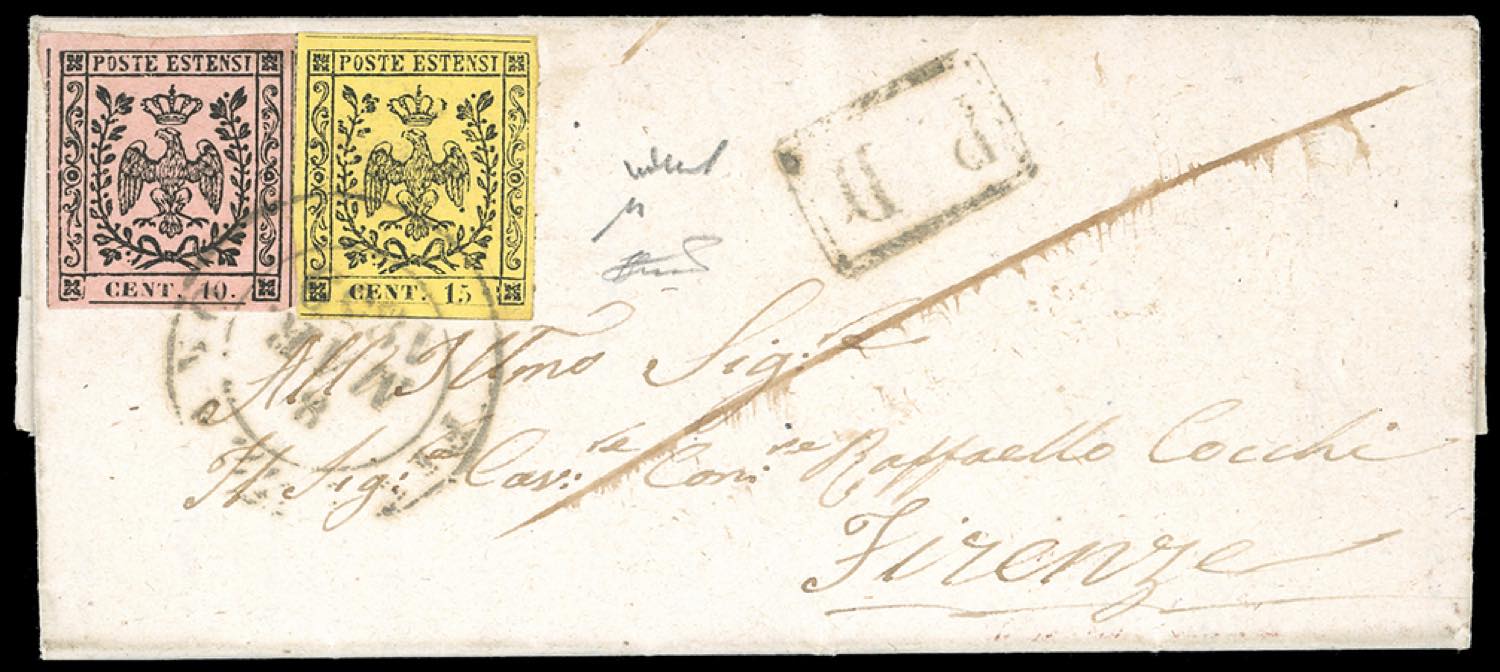 POSTE ESTENSI
CENT. 10.
POSTE ESTENSI
CENT. 15
P D
8
MAR
All' Illmo Sig.r
Il Sig.r Cav.re Com.re Raffaello Cocchi
Firenze